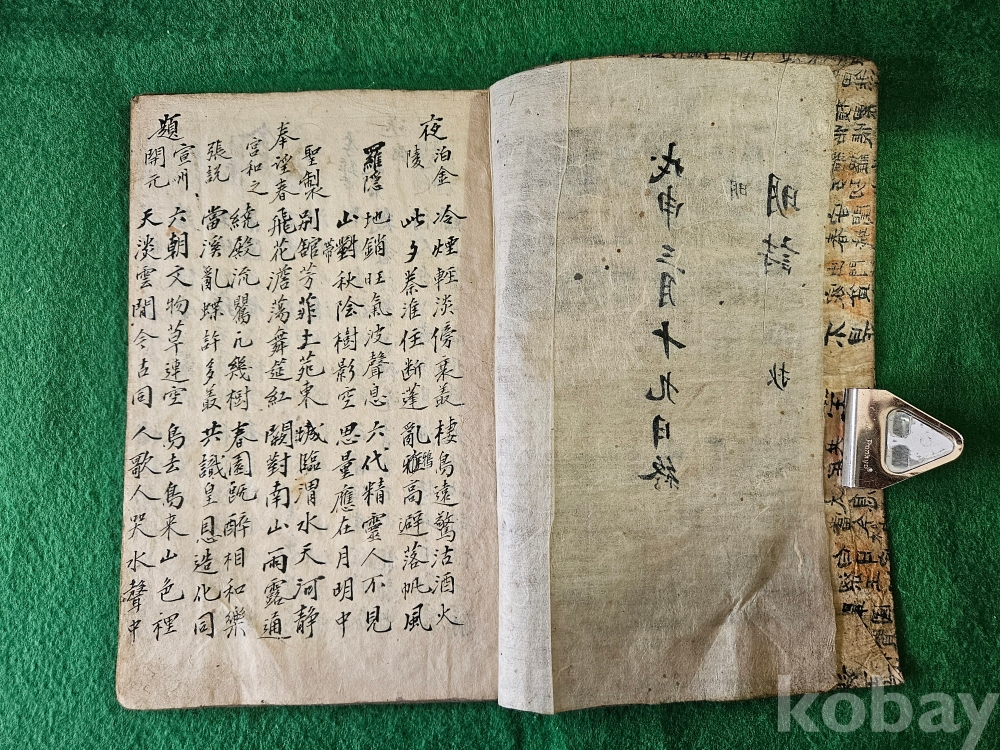 明詩 抄
明
戊申三月十九日終
夜泊金 冷煙輕淡傍衰叢 棲鳥遠驚沽酒火
陵 此夕秦淮住斷蓬 亂雅高避落帆風
鴉
羅隱 地銷旺氣波聲息 六代精靈人不見
山對秋陰樹影空 思量應在月明中
帶
聖製 別舘芳菲土苑東 城臨渭水天河靜
奉望春 飛花澹蕩舞筵紅 闕對南山雨露通
宮和之 繞殿流鶯凡幾樹 春園既醉相和樂
張說 當溪亂蝶許多叢 共識皇恩造化同
題宣州 六朝文物草連空 鳥去鳥来山色裡
開元 天淡雲閒今古同 人歌人哭水聲中
kobay